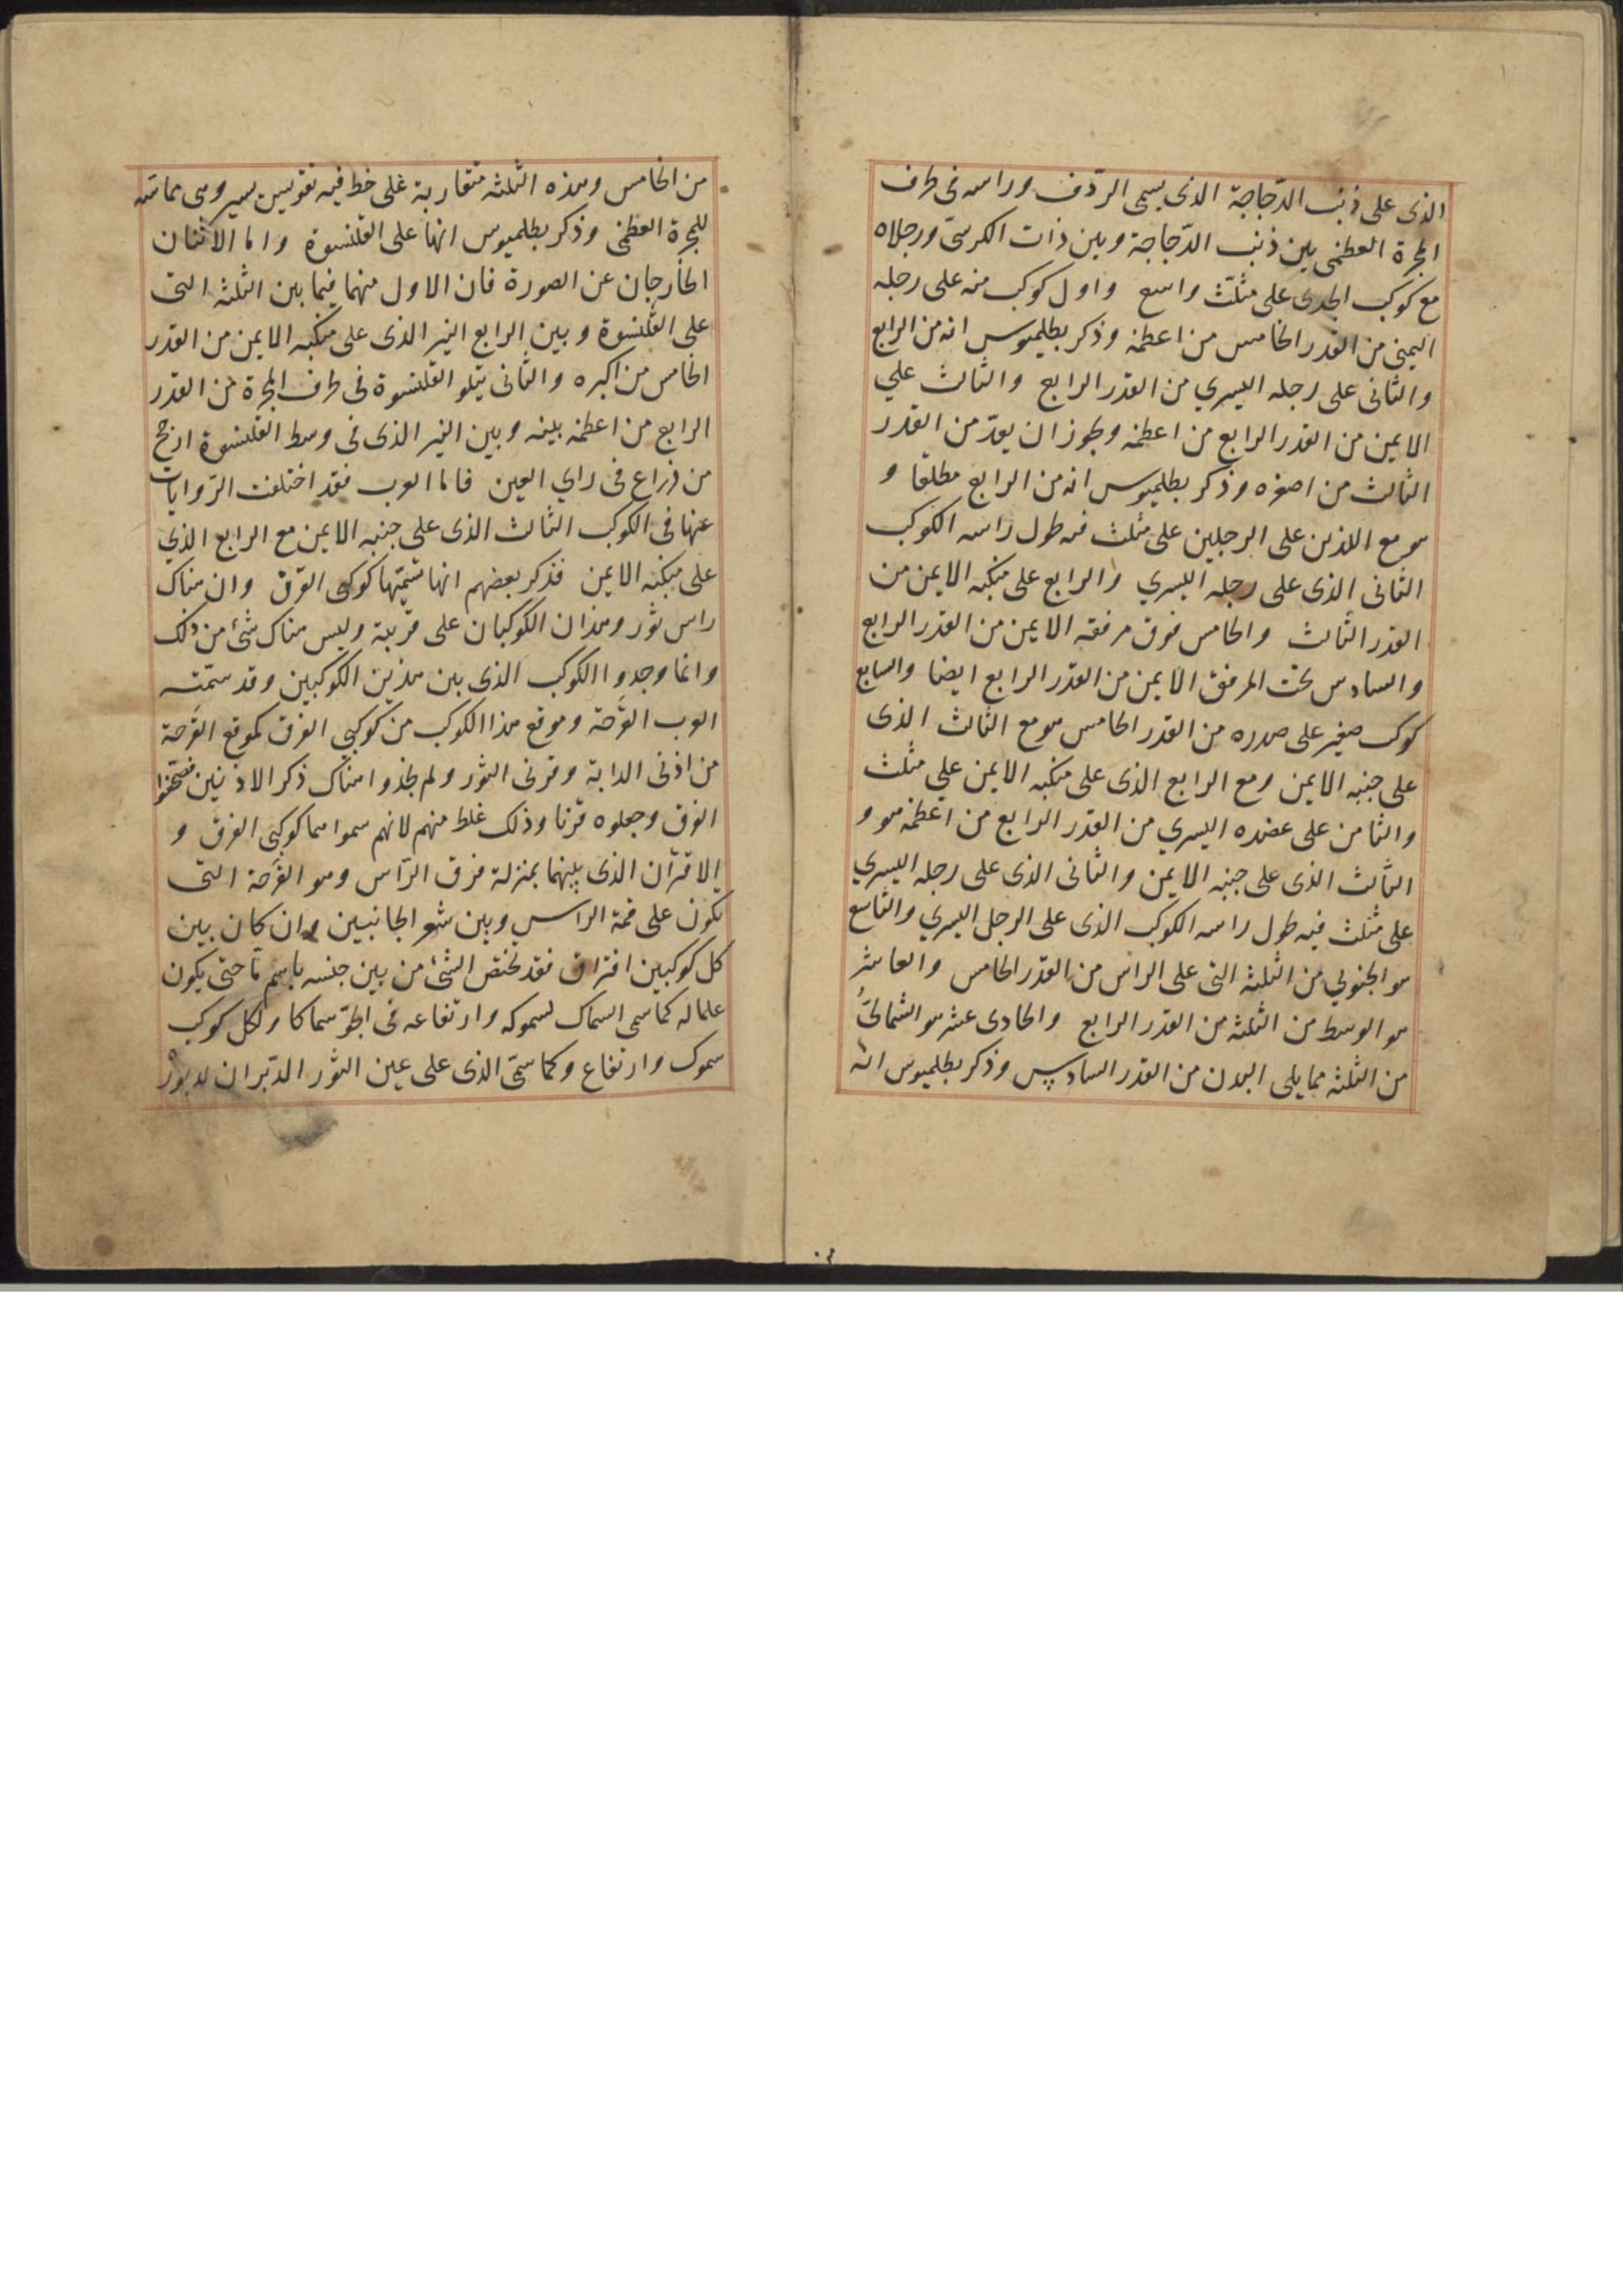 الذى على ذنب الدّجاجة الذى يسمى الردف وراسه فى طرف
المجرة العظمى بين ذنب الدّجاجة وبين ذات الكرسىّ ورجلاه
مع كوكب الجدى على مثلّث واسع واول كوكب منه على رجله
اليمنى من القدر الخامس من اعظمه وذكر بطلميوس انه من الرابع
والثانى على رجله اليسري من القدر الرابع والثالث علي
الايمن من القدر الرابع من اعظمه ويجوز ان يعدّ من القدر
الثالث من اصغره وذكر بطلميوس انه من الرابع مطلقا و
هو مع اللذين على الرجلين على مثلث فيه طول راسه الكوكب
الثانى الذى على رجله اليسري والرابع على منكبه الايمن من
القدر الثالث والخامس فوق مرفقه الايمن من القدر الرابع
والسادس تحت المرفق الايمن من القدر الرابع ايضا والسابع
كوكب صغير على صدره من القدر الخامس هو مع الثالث الذى
على جنبه الايمن ومع الرابع الذى على منكبه الايمن علي مثلث
والثامن على عضده اليسري من القدر الرابع من اعظمه هو و
الثالث الذى على جنبه الايمن والثانى الذى على رجله اليسري
على مثلث فيه طول راسه الكوكب الذى على الرجل اليسري والتاسع
هو الجنوبي من الثلثه التى على الراس من القدر الخامس والعاشر
هو الوسط من الثلثه من القدر الرابع والحادى عشر هو الشمالىُّ
من الثلثه مما يلى البدن من القدر السادس وذكر بطلميوس انه
من الخامس وهذه الثلثه متقاربة على خط فيه تقويس يسير وهى مماسّه
للمجرة العظمى وذكر بطلميوس انها على القلنسوة واما الاثنان
الخارجان عن الصورة فان الاول منهما فيما بين الثلثه التى
على القلنسوة وبين الرابع النير الذى على منكبه الايمن من القدر
الخامس من اكبره والثانى يتلو القلنسوة فى طرف المجرة من القدر
الرابع من اعظمه بينه وبين النير الذى فى وسط القلنسوة ارجح
من ذراع فى راي العين فاما العرب فقد اختلفت الرّوايات
عنها فى الكوكب الثالث الذى على جنبه الايمن مع الرابع الذي
على منكبه الايمن فذكر بعضهم انها سمّتهما كوكبى القرق وان هناك
راس ثور وهذان الكوكبان على قرنيه وليس هناك شئ من ذلك
وانما وجدوا الكوكب الذى بين هذين الكوكبين وقد سمّته
العرب القَرحة وموقع هذا الكوكب من كوكبي الفرق كموقع القَرحة
من اذنى الدابة وقرنى الثور ولم يجدوا هناك ذكر الاذنين فصحّفوا
الفرق وجعلوه قرنا وذلك غلط منهم لانهم سموا هما كوكبى الفرق و
الافتران الذى بينهما بمنزلة فرق الرّاس وهو القَرحة التى
يكون على قمة الراس وبين شعر الجانبين وان كان بين
كل كوكبين افتراق فقد يختص الشئ من بين جنسه باسم مّا حتى يكون
علما له كما سمى السماك لسموكه وارتفاعه فى الجوّ سماكا ولكل كوكب
سموك وارتفاع وكما سمّى الذى على عين الثور الدّبران لدبوره